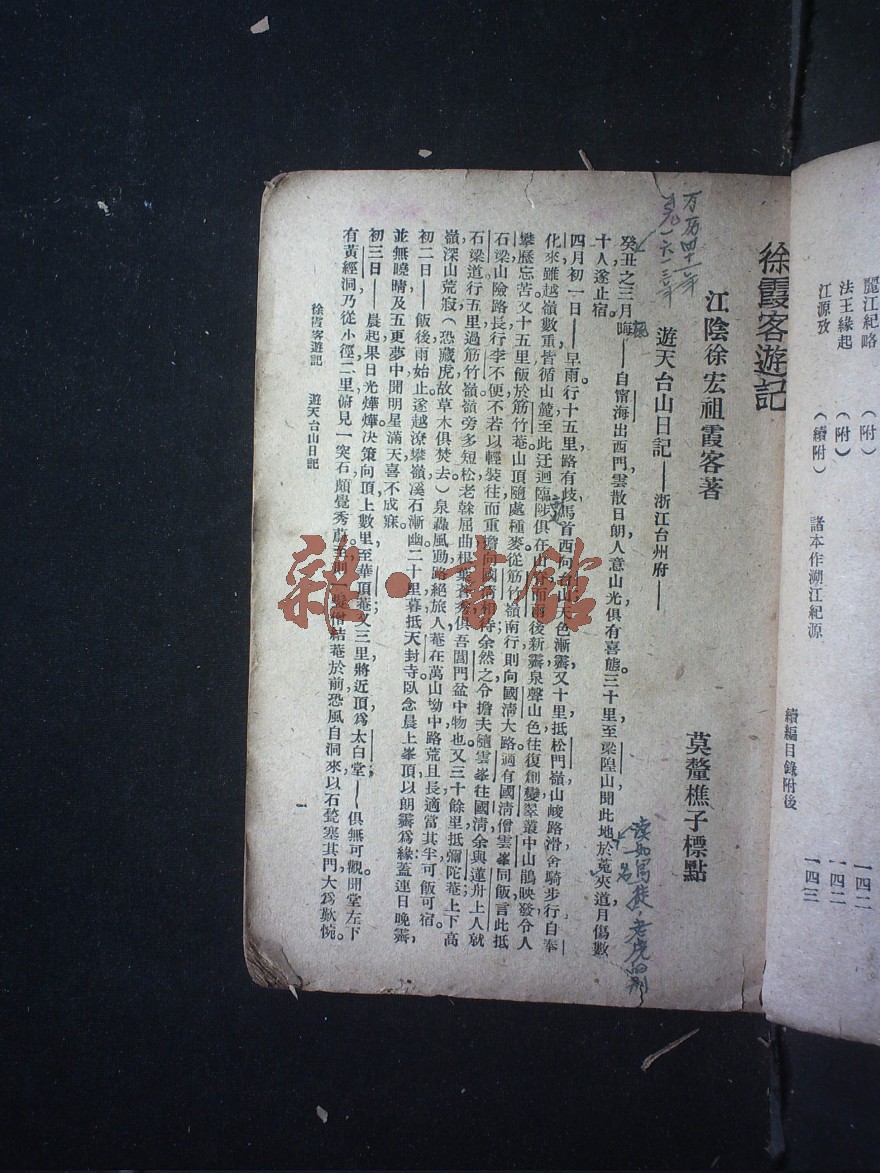 麗江紀略（附）一四二
法王緣起（附）一四二
江源攷（續附）諸本作溯江紀源 一四三
續編目錄附後
徐霞客遊記
江陰徐宏祖霞客著
莫釐樵子標點
遊天台山日記——浙江台州府——
万历四十一年
公元一六一三年
癸丑之三月晦——自甯海出西門雲散日朗人意山光俱有喜態三十里至梁隍山聞此地於菟夾道月傷數
十人遂止宿。
读如乌徒，老虎的别名
四月初一日——早雨行十五里路有歧馬首西向台山天色漸霽又十里抵松門嶺山峻路滑舍騎步行自奉
化來雖越嶺數重皆循山麓至此迂迴臨陟俱在山脊而雨後新霽泉聲山色往復創變翠叢中山鵑映發令人
攀歷忘苦又十五里飯於筋竹菴山頂隨處種麥從筋竹嶺南行則向國淸大路適有國淸僧雲峯同飯言此抵
石梁山險路長行李不便不若以輕裝往而重擔向國淸相待余然之令擔夫隨雲峯往國淸余與蓮舟上人就
石梁道行五里過筋竹嶺嶺旁多短松老幹屈曲根葉蒼秀俱吾閶門盆中物也又三十餘里抵彌陀菴上下高
嶺深山荒寂（恐藏虎故草木俱焚去）泉轟風動路絕旅人菴在萬山坳中路荒且長適當其半可飯可宿。
初二日——飯後雨始止遂越潦攀嶺溪石漸幽二十里暮抵天封寺臥念晨上峯頂以朗霽爲緣蓋連日晚霽，
並無曉晴及五更夢中聞明星滿天喜不成寐。
初三日——晨起果日光燁燁決策向頂上數里至華頂菴又三里將近頂爲太白堂——俱無可觀聞堂左下
有黃經洞乃從小徑二里俯見一突石頗覺秀蔚至則一髮僧結菴於前恐風自洞來以石甃塞其門大爲歎惋。
徐霞客遊記　遊天台山日記
一
雜·書館